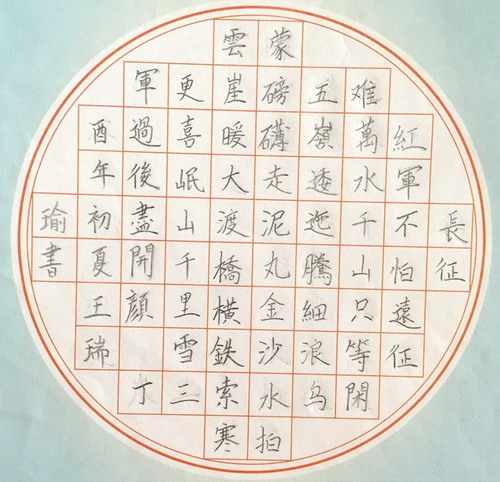 長征
紅軍不怕遠征
难萬水千山只等閑
五嶺逶迤騰細浪乌
蒙磅礴走泥丸金沙水拍
雲崖暖大渡橋横鉄索寒
更喜岷山千里雪三
軍過後盡開顔 丁
酉年初夏王瑞
瑜書